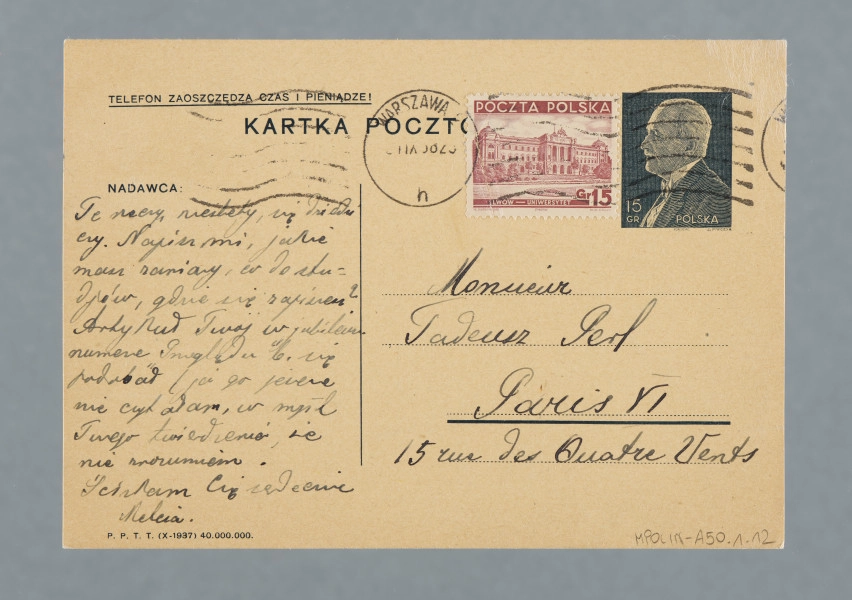 TELEFON ZAOSZCZĘDZA CZAS I PIENIĄDZE!
KARTKA POCZTO
WARSZAWA
h
POCZTA POLSKA
Gr. 15
LWÓW — UNIWERSYTET
15
GR
POLSKA
NADAWCA:
się
Napisz mi, jakie
masz zamiary, co do stu-
djów, gdzie się zapisze
Artykuł Twój w
numerze Przeglądu się
podobał (ja go jeszcze
nie czytałam, w myśl
Twego twierdzenia, że
nie zrozumiem.
Ściskam Cię serdecznie
Melcia.
P. P. T. T. (X-1937) 40.000.000.
Monsieur
Tadeusz Perl
Paris VI
15 rue des Quatre Vents
MPOLIN-A50.1.12